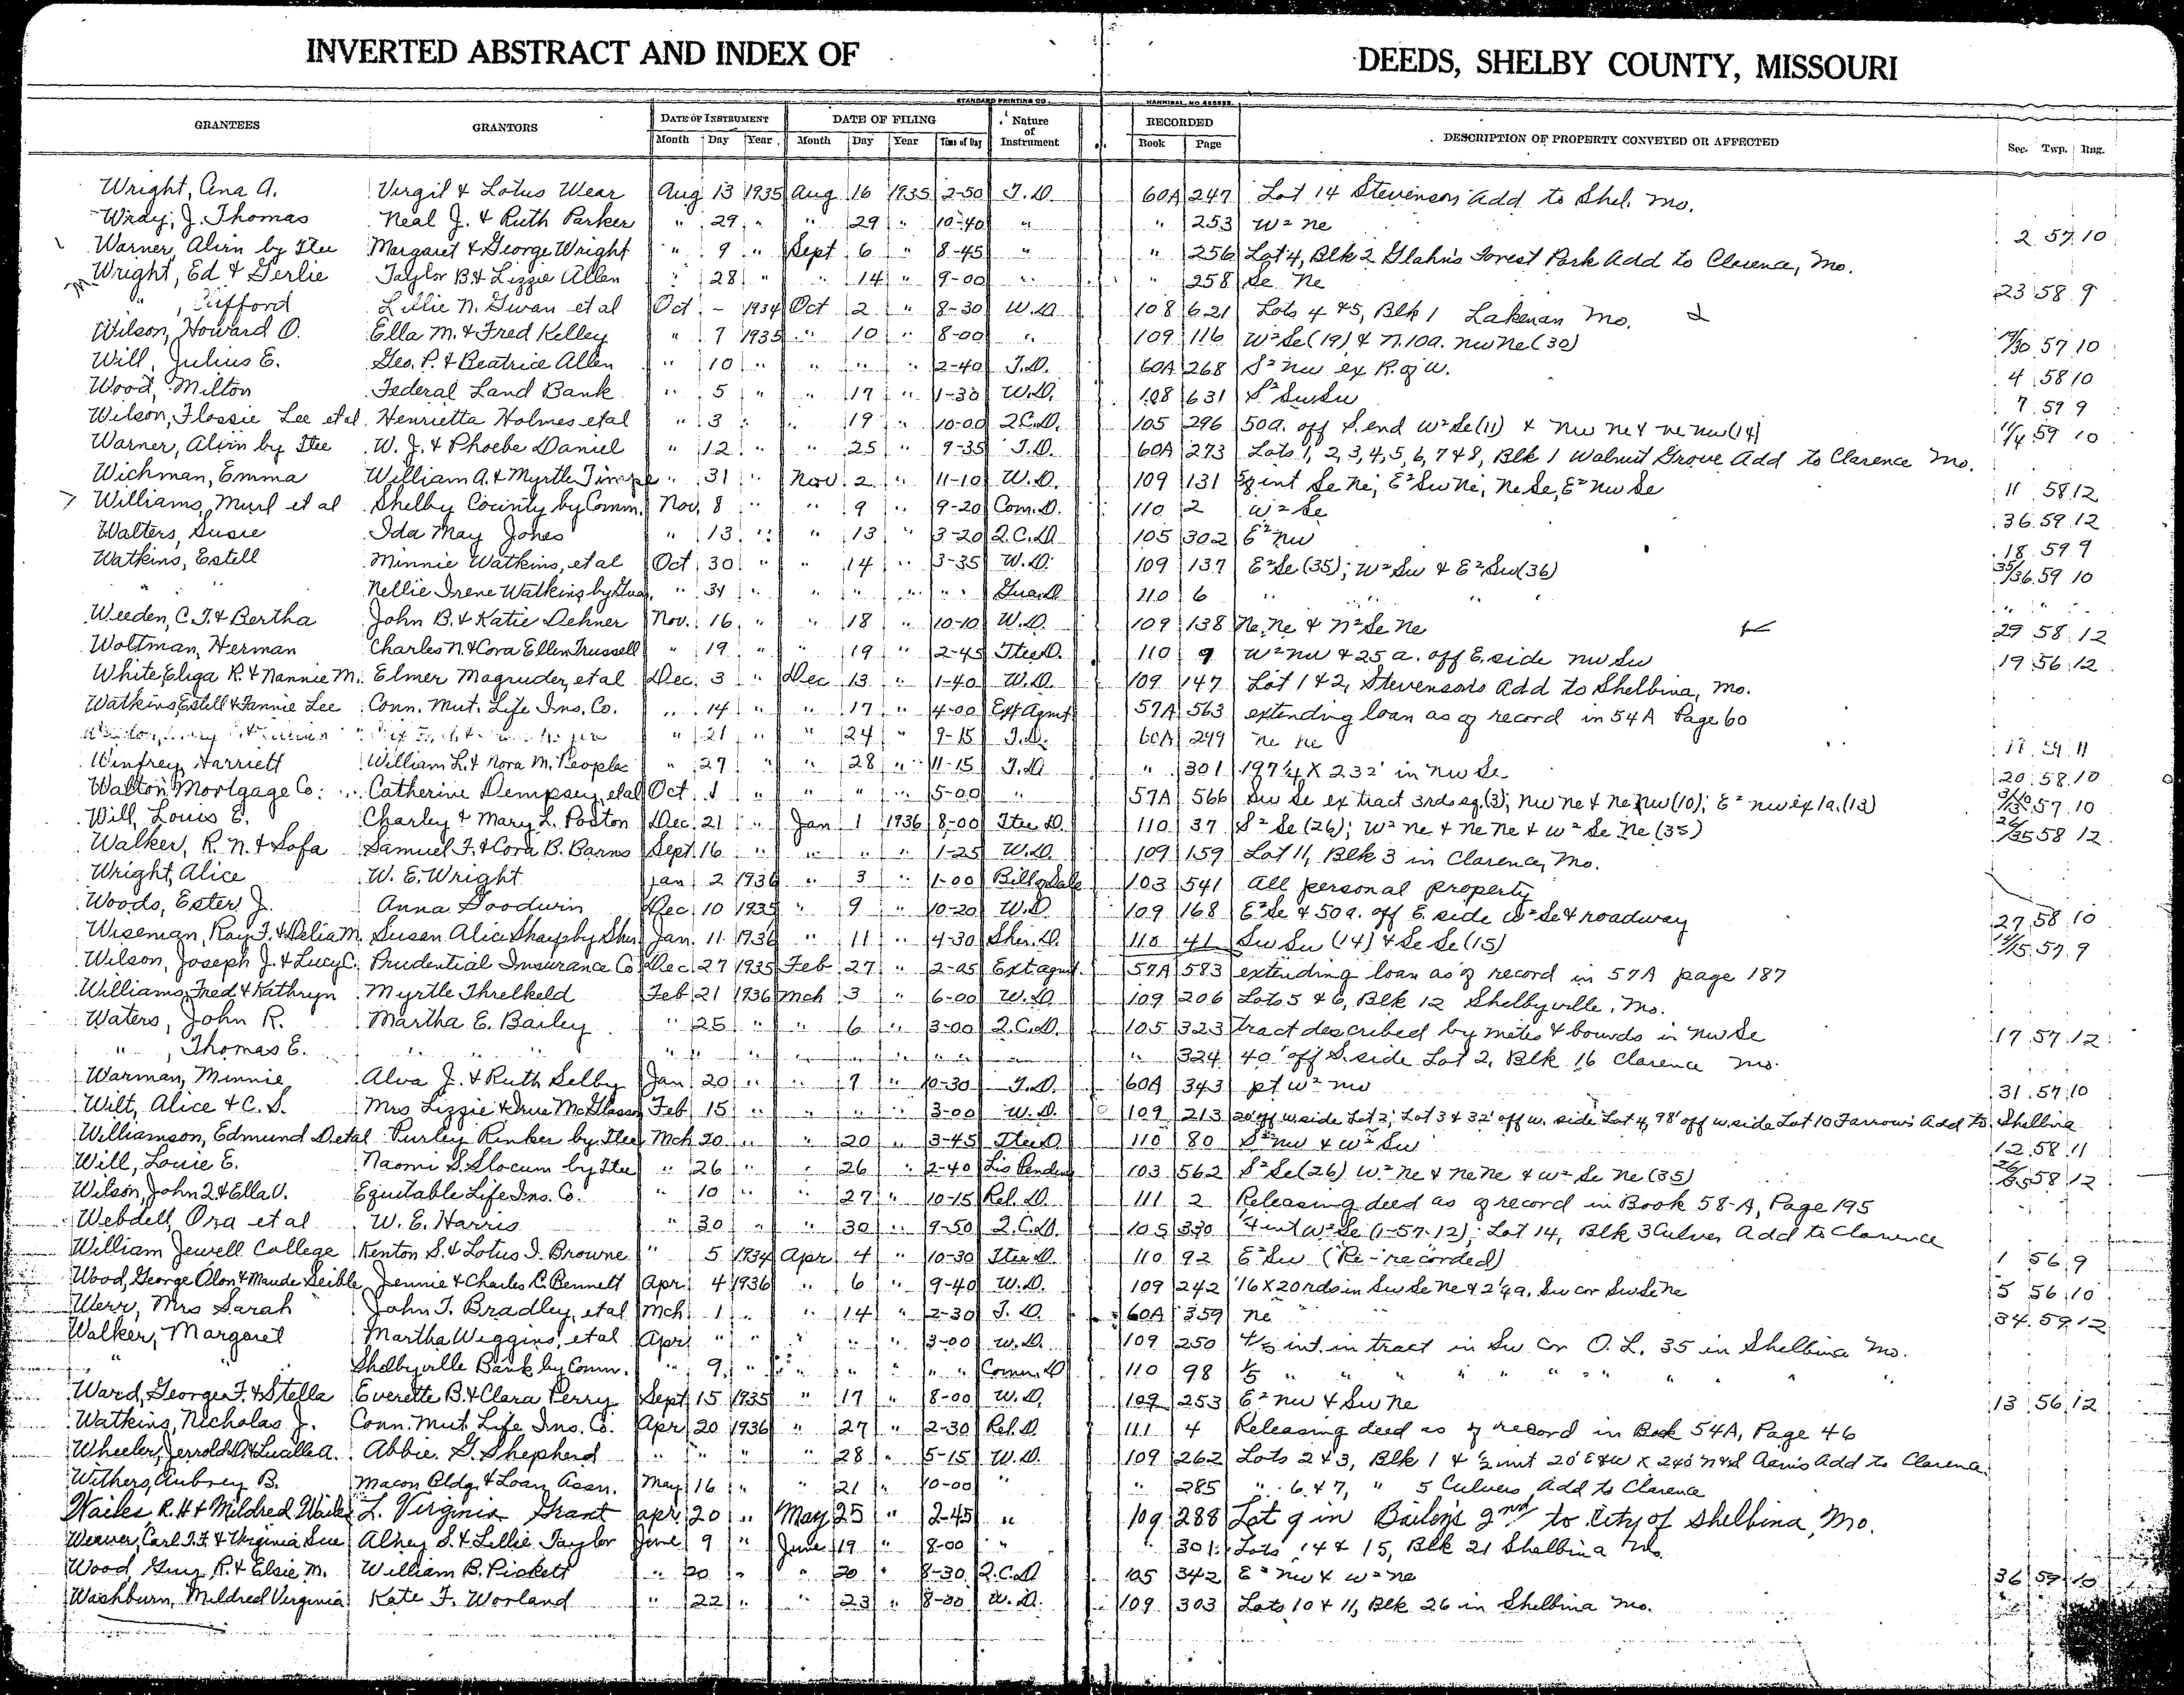 INVERTED ABSTRACT AND INDEX OF DEEDS, SHELBY COUNTY, MISSOURI
STANDARD PRINTING CO. HANNIBAL, MO
GRANTEES GRANTORS DATE OF INSTRUMENT DATE OF FILING Nature of Instrument RECORDED DESCRIPTION OF PROPERTY CONVEYED OR AFFECTED Sec. Twp. Rng.
Month Day Year Month Day Year Time of Day Book Page
Wright, Ana A. Virgil & Lotus Wear Aug 13 1935 Aug 16 1935 2-50 T.D. 60A 247 Lot 14 Stevensons Add to Shel. Mo.
Wray, J. Thomas Neal J. & Ruth Parker " 29 " " 29 " 10-40 " " 253 W² ne 2 57 10
Warner, Alvin by Tee Margaret & George Wright " 9 " Sept 6 " 8-45 " " 256 Lot 4, Blk 2 Glahn's Forest Park Add to Clarence, Mo.
Wright, Ed & Gerlie Taylor B & Lizzie Allen " 28 " " 14 " 9-00 " " 258 Se Ne 23 58 9
" , Clifford Lillie N. Gwan et al Oct - 1934 Oct 2 " 8-30 W.D. 108 621 Lots 4 & 5, Blk 1 Lakenan Mo.
Wilson, Howard O. Ella M. & Fred Kelley " 7 1935 " 10 " 8-00 " 109 116 W² Se (19) & N.10a. nw Ne (30) 19/30 57 10
Will, Julius E. Geo. P. & Beatrice Allen " 10 " " " " 2-40 T.D. 60A 268 S² nw ex R. of W. 4 58 10
Wood, Milton Federal Land Bank " 5 " " 17 " 1-30 W.D. 108 631 S² Sw Sw 7 59 9
Wilson, Flossie Lee et al Henrietta Holmes et al " 3 " " 19 " 10-00 Q.C.D. 105 296 50a. off S. end W² Se (11) & nw ne & ne nw (14) 11/14 59 10
Warner, Alvin by Tee W. J. & Phoebe Daniel " 12 " " 25 " 9-35 T.D. 60A 273 Lots 1, 2, 3, 4, 5, 6, 7 & 8, Blk 1 Walnut Grove Add to Clarence Mo.
Wichman, Emma William A. & Myrtle Timpe " 31 " Nov. 2 " 11-10 W.D. 109 131 int Se Ne, E² Sw Ne, Ne Se, E² nw Se 11 58 12
Williams, Murl et al Shelby County by Comm. Nov. 8 " " 9 " 9-20 Com. D. 110 2 W² Se 36 59 12
Walters, Susie Ida May Jones " 13 " " 13 " 3-20 Q.C.D. 105 302 E² nw 18 59 9
Watkins, Estell Minnie Watkins, et al Oct 30 " " 14 " 3-35 W.D. 109 137 E² Se (35); W² Sw & E² Sw (36) 35/36 59 10
" " Nellie Irene Watkins by Gua. " 31 " " " " " Gua. D 110 6 " " " " " "
Weeden, C. T. & Bertha John B. & Katie Dehner Nov. 16 " " 18 " 10-10 W.D. 109 138 Ne Ne & N² Se Ne 29 58 12
Woltman, Herman Charles N. & Cora Ellen Trussell " 19 " " 19 " 2-45 Tee D. 110 9 W² nw & 25 a. off E. side nw Sw 19 56 12
White, Eliga R. & Nannie M. Elmer Magruder, et al Dec. 3 " Dec 13 " 1-40 W.D. 109 147 Lot 1 & 2, Stevensons Add to Shelbina, Mo.
Watkins, Estell & Fannie Lee Conn. Mut. Life Ins. Co. " 14 " " 17 " 4-00 Ext Agmt 57A 563 extending loan as of record in 54A Page 60
" 21 " " 24 " 9-15 T.D. 60A 299 ne ne 11
Winfrey, Harriett William L. & Nora M. Peoples " 27 " " 28 " 11-15 T.D " 301 197¼ X 232' in nw Se 20 58 10
Walton Mortgage Co. Catherine Dempsey, et al Oct 1 " " " " 5-00 " 57A 566 Sw Se ex tract 3rds sq. (3); nw ne & ne nw (10); E² nw ex 1a. (13) 57 10
Will, Louis E. Charley & Mary L. Poston Dec 21 " Jan 1 1936 8-00 Tee D. 110 37 S² Se (26); W² ne & ne ne & W² Se ne (35) 26/35 58 12
Walker, R. N. & Sofa Samuel F. & Cora B. Barns Sept 16 " " " " 1-25 W.D. 109 159 Lot 11, Blk 3 in Clarence, Mo.
Wright, Alice W. E. Wright Jan 2 1936 " 3 " 1-00 Bill of Sale 103 541 All personal property
Woods, Ester J. Anna Goodwin Dec 10 1935 " 9 " 10-20 W.D 109 168 E² Se & 50 a. off E. side W² Se & roadway 27 58 10
Wiseman, Ray F. & Delia M. Susan Alice Sharp by Sher Jan. 11 1936 " 11 " 4-30 Sher. D. 110 41 Sw Sw (14) & Se Se (15) 14/15 57 9
Wilson, Joseph J. & Lucy C. Prudential Insurance Co Dec 27 1935 Feb 27 " 2-05 Ext agmt. 57A 583 extending loan as of record in 57A page 187
Williams, Fred & Kathryn Myrtle Threlkeld Feb 21 1936 Mch 3 " 6-00 W.D. 109 206 Lots 5 & 6, Blk 12 Shelbyville, Mo.
Waters, John R. Martha E. Bailey " 25 " " 6 " 3-00 Q.C.D. 105 323 tract described by metes & bounds in nw Se 17 57 12
" , Thomas E. " " " " " " " " " " " " 324 40' off S. side Lot 2, Blk 16 Clarence Mo.
Warman, Minnie Alva J. & Ruth Selby Jan 20 " " 7 " 10-30 T.D. 60A 343 pt W² nw 31 57 10
Wilt, Alice & C. S. Mrs Lizzie & True McGlasson Feb 15 " " " " 3-00 W.D. 109 213 20' off w. side Lot 2, Lot 3 & 32' off w. side Lot 4, 98' off w. side Lot 10 Farrows Add to Shelbina
Williamson, Edmund D. et al Purley Rinker by Tee Mch 20 " " 20 " 3-45 Tee D 110 80 S² nw & W² Sw 12 58 11
Will, Louie E. Naomi S. Slocum by Tee " 26 " " 26 " 2-40 Lis Pendens 103 562 S² Se (26) W² ne & ne ne & W² Se ne (35) 26/35 58 12
Wilson, John Q. & Ella V. Equitable Life Ins. Co. " 10 " 27 " 10-15 Rel. D. 111 2 Releasing deed as of record in Book 58-A, Page 195
Webdell, Ora et al W. E. Harris " 30 " " 30 " 9-50 Q.C.D. 105 330 ¼ int W² Se (1-57-12), Lot 14, Blk 3 Culver Add to Clarence
William Jewell College Kenton S. & Lotus I. Browne " 5 1934 Apr 4 " 10-30 Tee D. 110 92 E² Sw (Re-recorded) 1 56 9
Wood, George Olon & Maude Seible Jennie & Charles C. Bennett Apr 4 1936 " 6 " 9-40 W.D. 109 242 16 X 20 rds in Sw Se Ne & 2¼ a. Sw cor Sw Se Ne 5 56 10
Werr, Mrs Sarah John T. Bradley, et al Mch 1 " " 14 " 2-30 T.D. 60A 359 ne 34 59 12
Walker, Margaret Martha Wiggins, et al Apr " " " " " 3-00 W.D. 109 250 4/5 int. in tract in Sw Cor O. L. 35 in Shelbina Mo.
" " Shelbyville Bank by Comm. " 9 " " " " " Comm. D 110 98 1/5 " " " " " " " "
Ward, George F. & Stella Everette B. & Clara Perry Sept 15 1935 " 17 " 8-00 W.D. 109 253 E² nw & Sw ne 13 56 12
Watkins, Nicholas J. Conn. Mut. Life Ins. Co. Apr 20 1936 " 27 " 2-30 Rel. D. 111 4 Releasing deed as of record in Book 54A, Page 46
Wheeler, Jerrold D. & Lucille A. Abbie G. Shepherd " " " " 28 " 5-15 W.D. 109 262 Lots 2 & 3, Blk 1 & ½ int 20' E&W X 240' N&S Add to Clarence
Withers, Aubrey B. Macon Bldg. & Loan Assn. May 16 " " 21 " 10-00 " " 285 " 6 & 7, " 5 Culvers Add to Clarence
Wailes R. H & Mildred Wailes L. Virginia Grant apr. 20 " May 25 " 2-45 " 109 288 Lot 9 in Bailey's 2nd to City of Shelbina, Mo.
Weaver, Carl T. F. & Virginia Sue Alney S. & Lillie Taylor June 9 " June 19 " 8-00 " " 301 Lots 14 & 15, Blk 21 Shelbina Mo.
Wood, Guy R. & Elsie M. William B. Pickett " 20 " " 20 " 8-30 Q.C.D 105 342 E² nw & W² ne 36 59 10
Washburn, Mildred Virginia Kate F. Worland " 22 " " 23 " 8-00 W.D. 109 303 Lots 10 & 11, Blk 26 in Shelbina Mo.